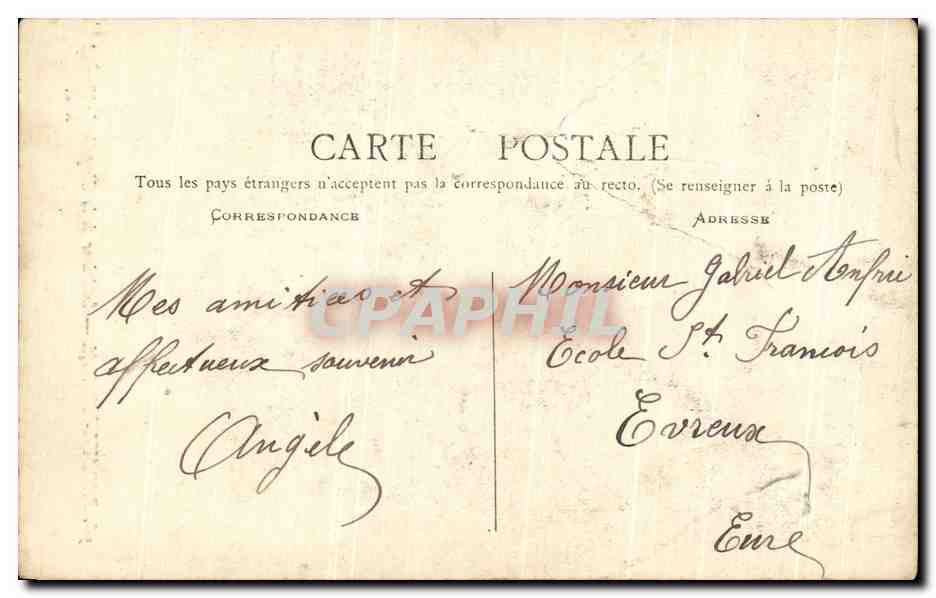 CARTE POSTALE
Tous les pays étrangers n'acceptent pas la correspondance au recto. (Se renseigner à la poste)
CORRESPONDANCE
ADRESSE
Mes amitiées et
affectueux souvenir
Angèle
Monsieur Gabriel Anfrie
Ecole St. François
Evreux
Eure
CPAPHIL